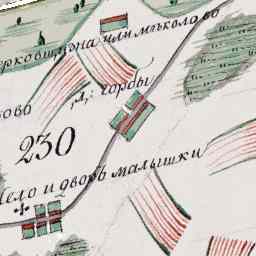 рковщизна или мѣколово
д: горбы
ово
230
Село и дворъ малышки